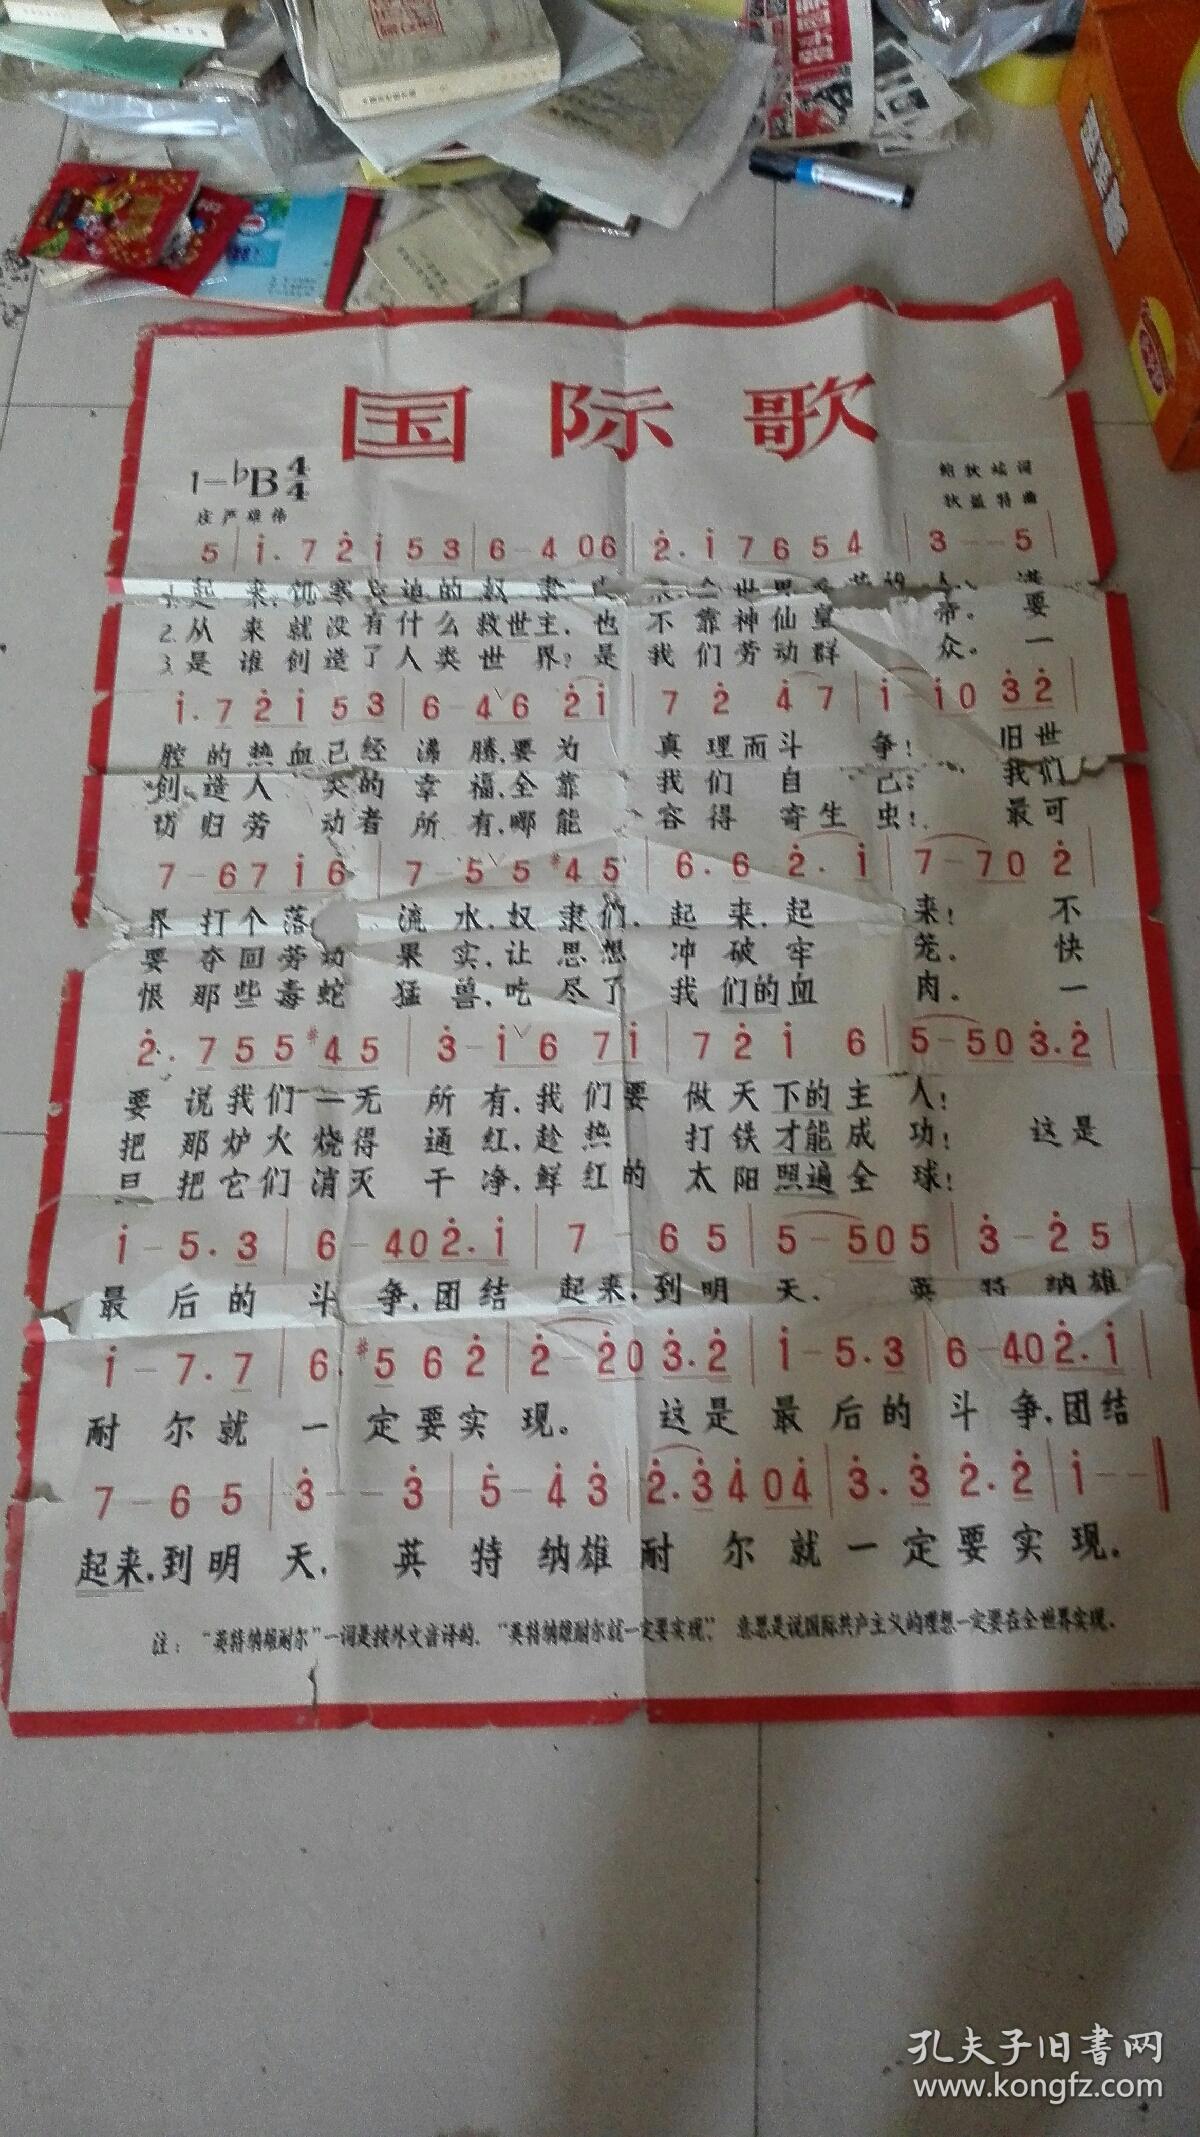 国际歌
1=♭B 4/4
庄严雄伟
鲍狄埃词
狄盖特曲
5 | i. 7 2 i 5 3 | 6 - 4 06 | 2. i 7 6 5 4 | 3 - - 5 |
1.起来,饥寒交迫的奴隶,世界人,满
2.从来就没有什么救世主,也不靠神仙皇帝。要
3.是谁创造了人类世界?是我们劳动群众。一
i. 7 2 i 5 3 | 6 - 4 6 2 i | 7 2 4 7 | i - i 0 3 2 |
腔的热血已经沸腾,要为真理而斗争!旧世
创造人类的幸福,全靠我们自己:我们
切归劳动者所有,哪能容得寄生虫!最可
7 - 6 7 i 6 | 7 - 5 5 #4 5 | 6. 6 2. i | 7 - 7 0 2 |
界打个落流水,奴隶们,起来,起来!不
要夺回劳动果实,让思想冲破牢笼。快
恨那些毒蛇猛兽,吃尽了我们的血肉。一
2. 7 5 5 #4 5 | 3 - i 6 7 i | 7 2 i 6 | 5 - 5 0 3. 2 |
要说我们一无所有,我们要做天下的主人!
把那炉火烧得通红,趁热打铁才能成功!这是
旦把它们消灭干净,鲜红的太阳照遍全球!
i - 5. 3 | 6 - 4 0 2. i | 7 - 6 5 | 5 - 5 0 5 | 3 - 2 5
最后的斗争,团结起来,到明天,英特纳雄
i - 7. 7 | 6. #5 6 2 | 2 - 2 0 3. 2 | i - 5. 3 | 6 - 4 0 2. i |
耐尔就一定要实现。这是最后的斗争,团结
7 - 6 5 | 3 - - 3 | 5 - 4 3 | 2. 3 4 0 4 | 3. 3 2. 2 | i - - ‖
起来,到明天,英特纳雄耐尔就一定要实现。
注:“英特纳雄耐尔”一词是按外文音译的,“英特纳雄耐尔就一定要实现”,意思是说国际共产主义的理想一定要在全世界实现。
孔夫子旧书网
www.kongfz.com